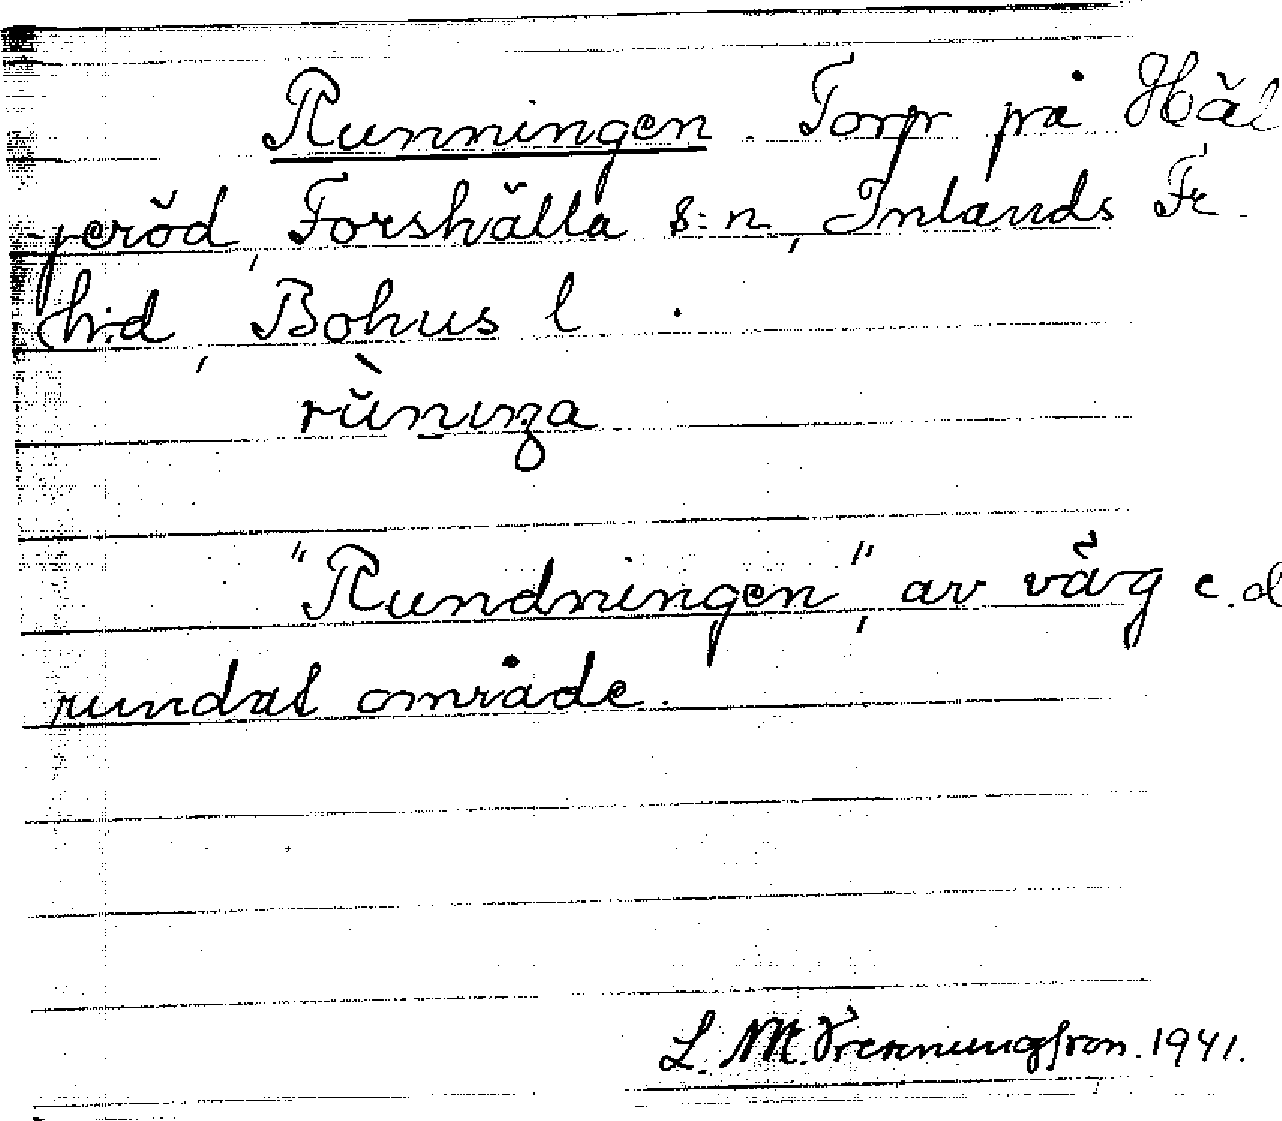 Runningen. Torp på Häl
jeröd, Forshälla s:n, Inlands Fr.
h:d, Bohus l.
"Rundningen", av väg e.d
rundat område.
L. M. 1941.